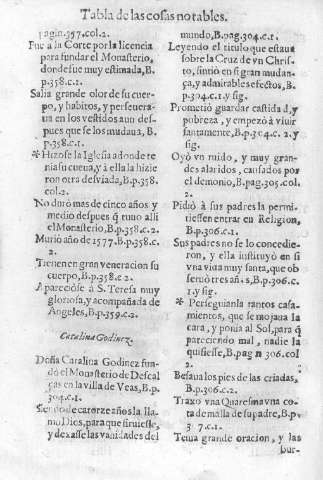 Tabla de las cosas notables.
pagin.357.col.2.
Fue a la Corte por la licencia
para fundar el Monasterio,
donde fue muy estimada, B.
p.358.c.1.
Salia grande olor de su cuer-
po, y habitos, y perseuera-
ua en los vestidos aun des-
pues que se los mudaua, B.
p.358.c.1.
* Hizose la Iglesia adonde te
nia su cueua, y à ella la hizie
ron otra desviada, B.p.358.
col.2.
No duró mas de cinco años y
medio despues q̃ tuuo alli
el Monasterio, B.p.358.c.2
Murió año de 1577. B.p.358.c.
2.
Tienen en gran veneracion su
cuerpo, B.p.358.c.2.
Apareciòse à S. Teresa muy
gloriosa, y acompañada de
Angeles, B.p.359.c.2.
Catalina Godinez.
Doña Catalina Godinez fun-
dó el Monasterio de Descal
ças en la villa de Veas, B.p.
304.c.1.
Siendo de catorze años la lla-
mo Dios, para que siruiesse,
y dexasse las vanidades del
mundo, B.pag.304.c.1.
Leyendo el titulo que estaua
sobre la Cruz de vn Chris-
to, sintió en si gran mudan-
ça, y admirables efectos, B.
p.304.c.1.y sig.
Prometió guardar castidad, y
pobreza, y empezó à viuir
santamente, B.p.304.c.2.y
sig.
Oyò vn ruido, y muy gran-
des alaridos, causados por
el demonio, B.pag.305.col.
2.
Pidió à sus padres la permi-
tiessen entrar en Religion,
B.p.306.c.1.
Sus padres no se lo concedie-
ron, y ella instituyò en si
vna vida muy santa, que ob
seruò tres años, B.p.306.c.
1.y sig.
* Perseguianla tantos casa-
mientos, que se mojaua la
cara, y ponia al Sol, para q̃
pareciendo mal, nadie la
quisiesse, B.pag.306.col
2.
Besaua los pies de las criadas,
B.p.306.c.2.
Traxo vna Quaresma vna co-
ta de malla de su padre, B.p.
307.c.1.
Tenia grande oracion, y las
bur-